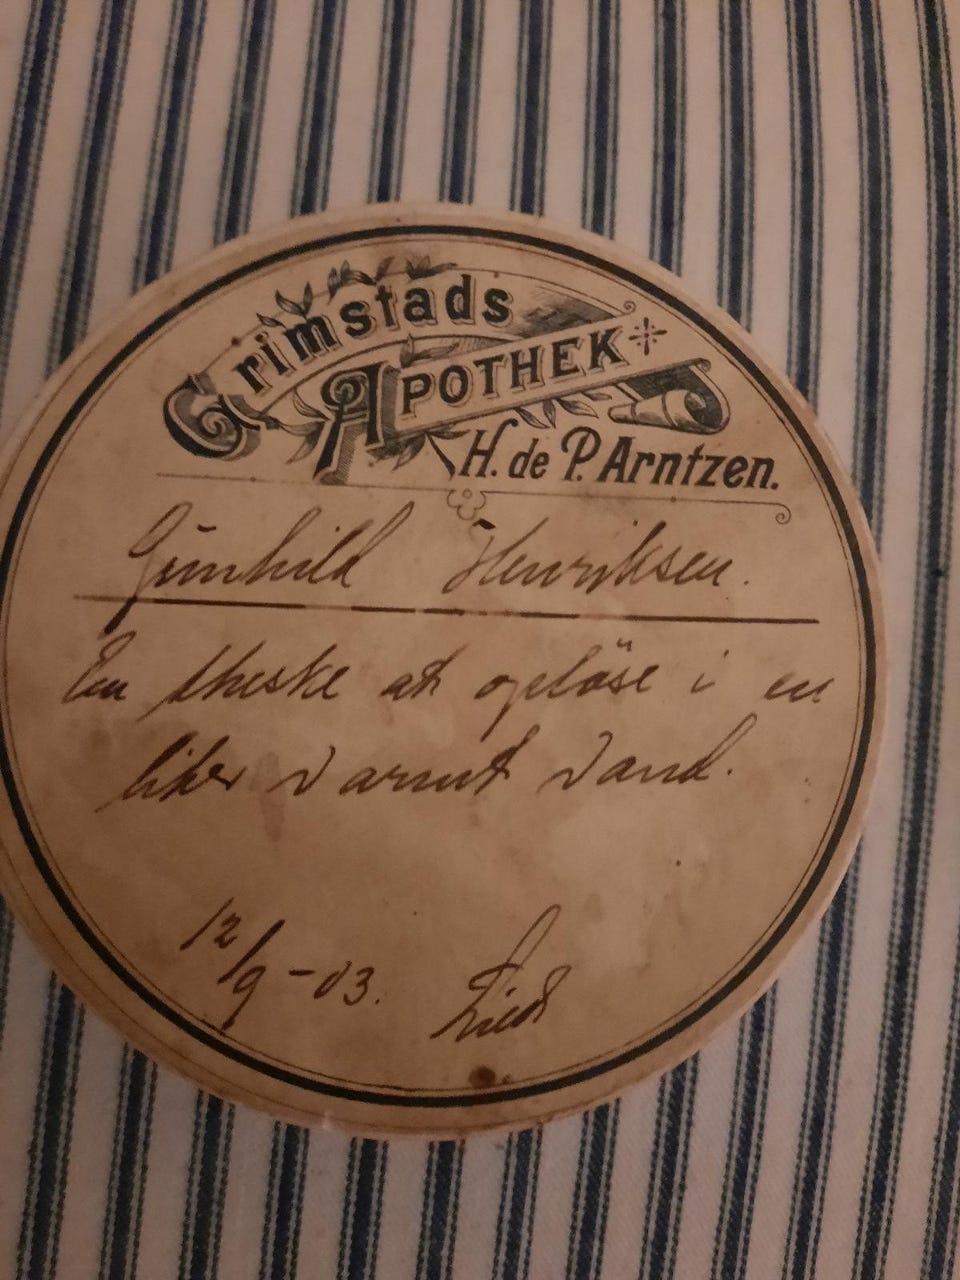 Grimstads
APOTHEK
H. de P. Arntzen.
Gunhild Henriksen.
En theske at oplöse i en
liter varmt vand.
12/9-03.